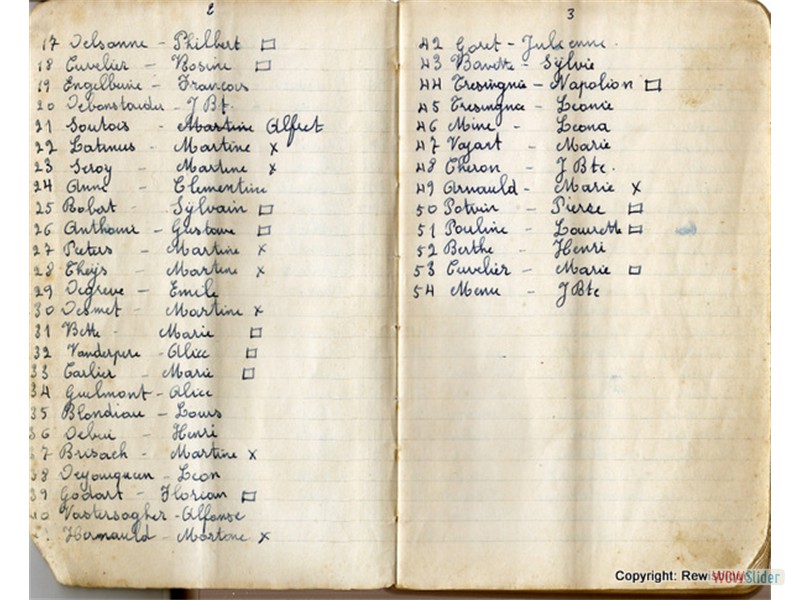 2
17 Delsanne - Philbert □
18 Cuvelier - Rosine □
19 Engelbuine - Francois
20 - J Bt.
21 Soutois - Martine Alfret
22 Latinus - Martine x
23 Seroy - Martine x
24 Anne - Clementine
25 Robert - Sÿlvain □
26 Anthoine - Gustave □
27 Pieters - Martine x
28 Theÿs - Martine x
29 Degreve - Emile
30 Desmet - Martine x
31 Bette - Marie □
32 Vanderpere - Alice □
33 Carlier - Marie □
34 Guilmont - Alice
35 Blondiau - Louis
36 - Henri
37 Brisach - Martine x
38 - Leon
39 Godart - Florian □
40 Vastersagher - Alfonse
41 Hernauld - Martine x
3
42 Goret - Julienne.
43 Bavette - Sÿlvie
44 Tresingnie - Napolion □
45 Tresingnie - Leonie
46 Mine - Leona
47 - Marie
48 Cheron - J Bte.
49 Arnauld - Marie x
50 Potvin - Pierre □
51 Pouline - Laurette □
52 Berthe - Henri
53 Cuvelier - Marie □
54 Menu - J Bte
Copyright: Rew
WOWSlider